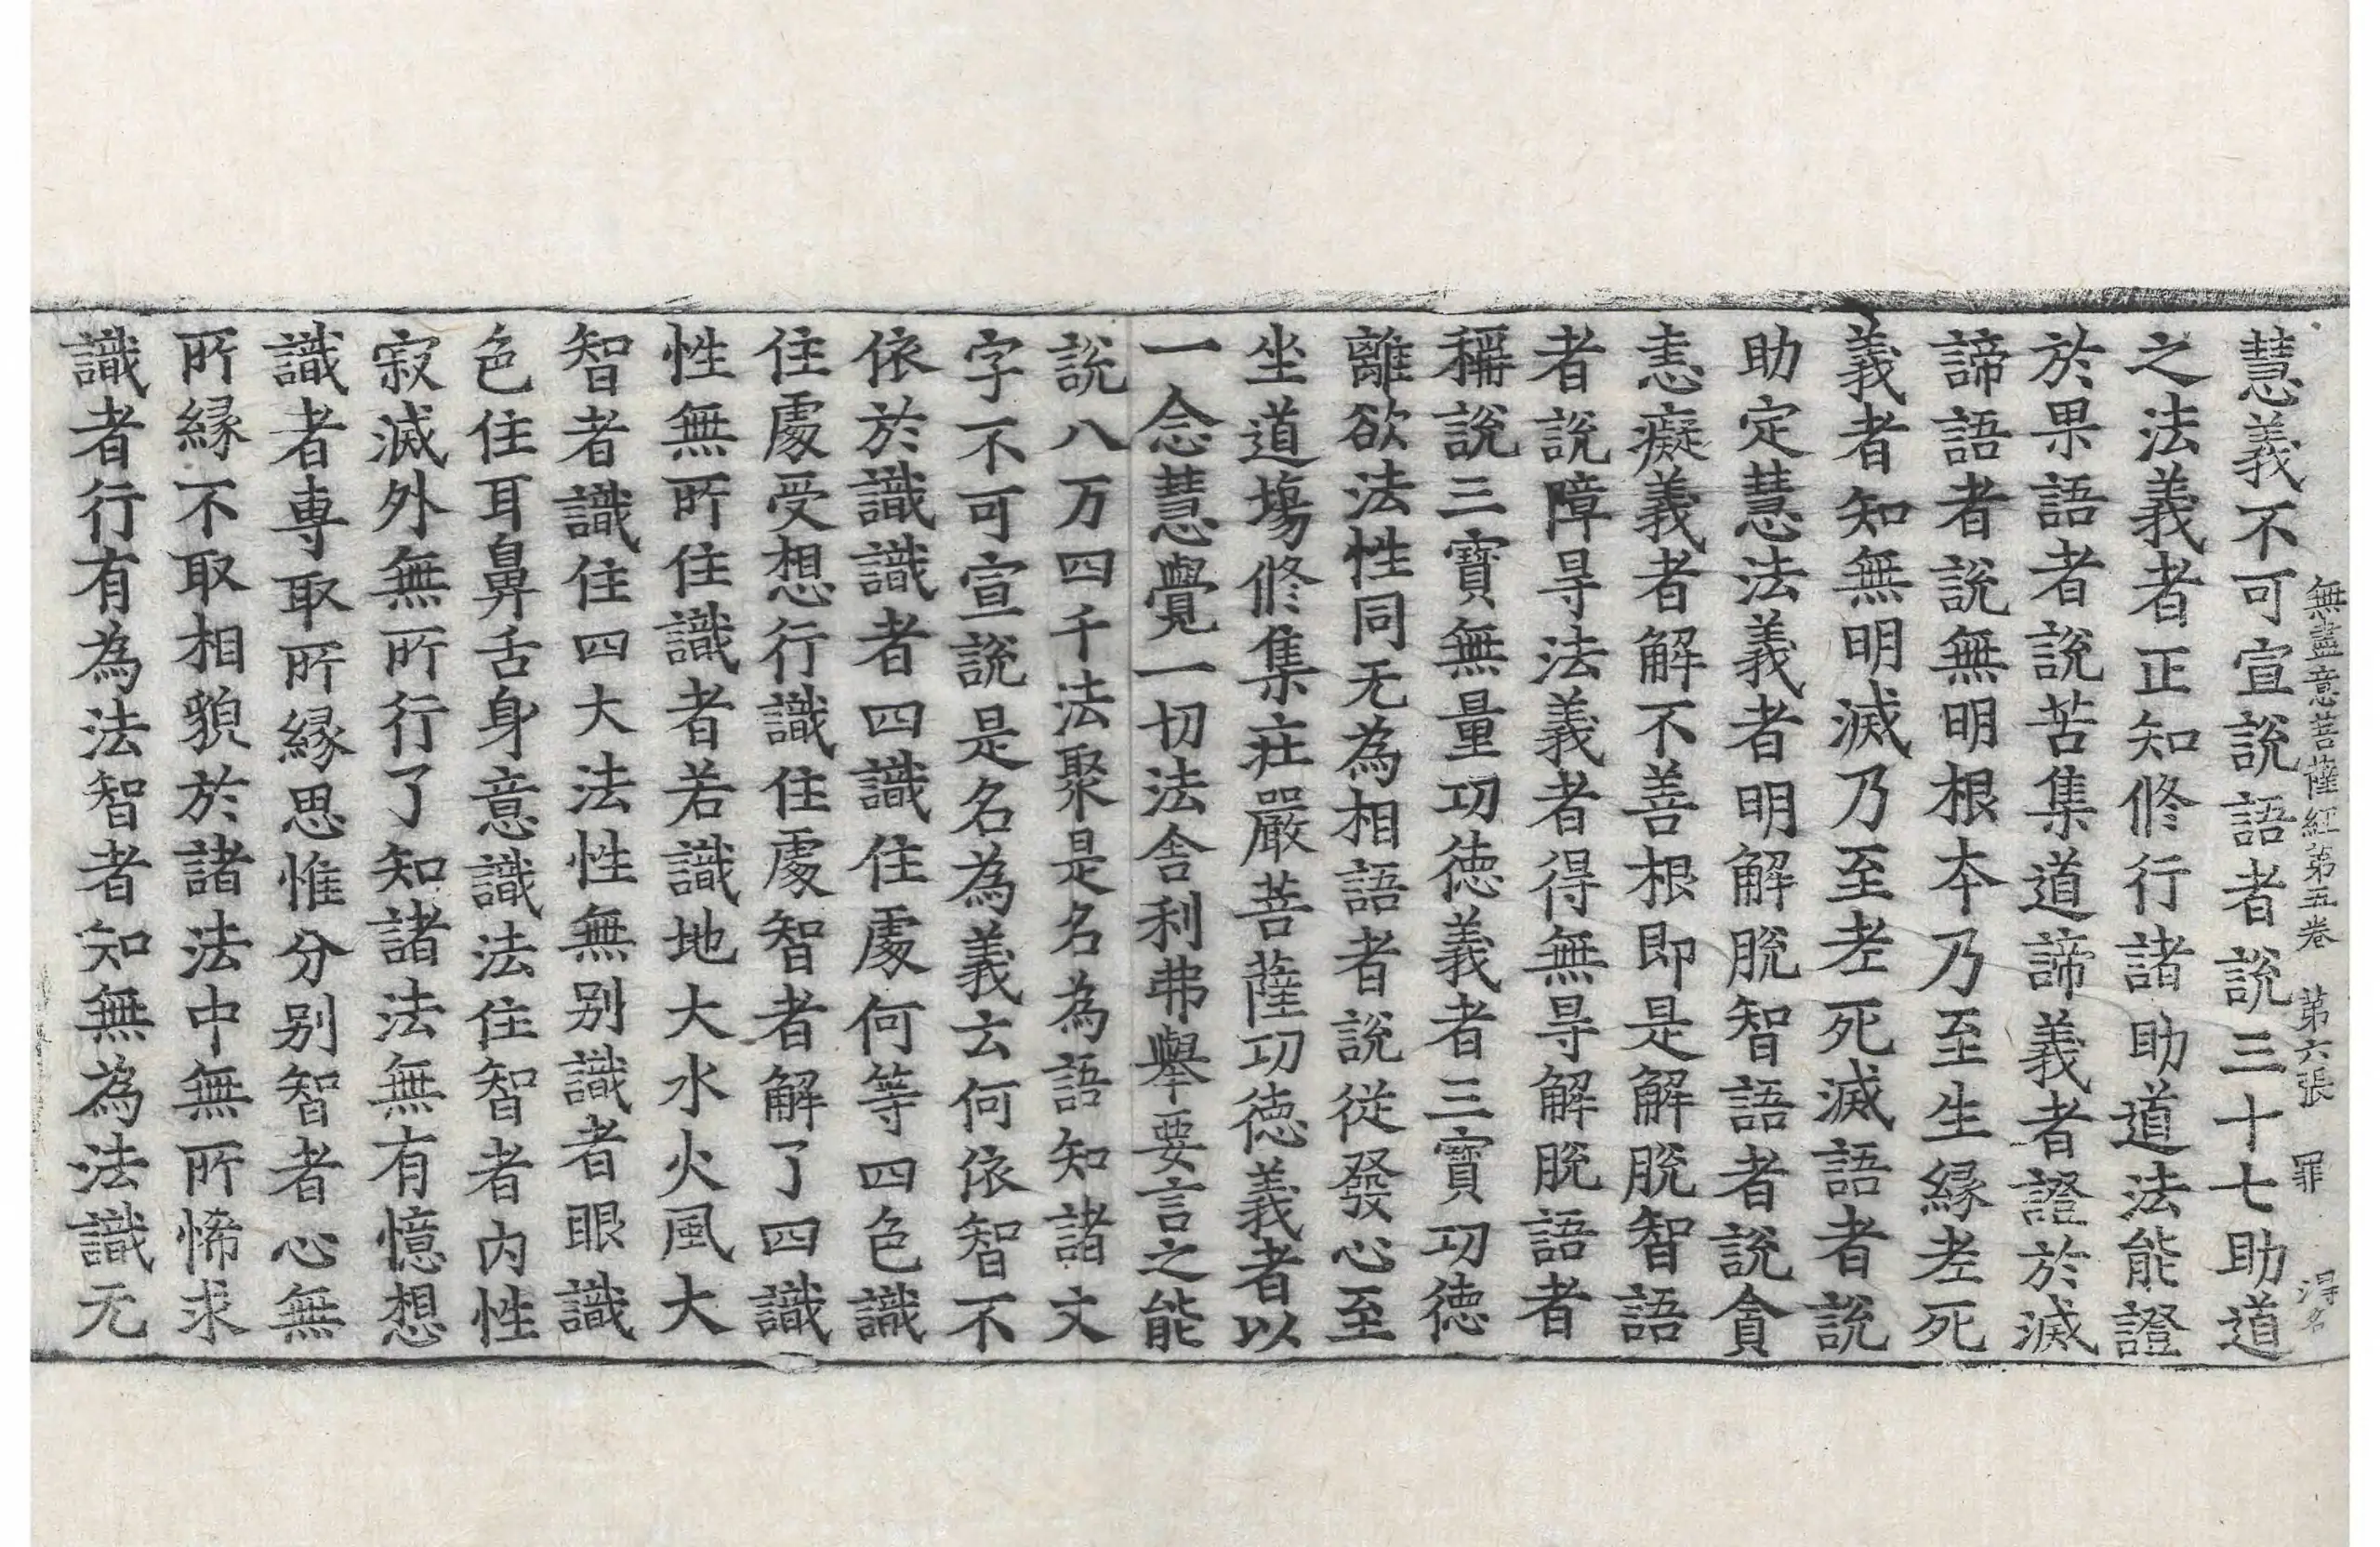 無盡意菩薩經第五卷　第六張　罪　得名
慧義不可宣說語者說三十七助道
之法義者正知修行諸助道法能證
於果語者說苦集道諦義者證於滅
諦語者說無明根本乃至生緣老死
義者知無明滅乃至老死滅語者說
助定慧法義者明解脫智語者說貪
恚癡義者解不善根即是解脫智語
者說障㝵法義者得無㝵解脫語者
稱說三寶無量功德義者三寶功德
離欲法性同无為相語者說從發心至
坐道場修集莊嚴菩薩功德義者以
一念慧覺一切法舍利弗舉要言之能
說八万四千法聚是名為語知諸文
字不可宣說是名為義云何依智不
依於識識者四識住處何等四色識
住處受想行識住處智者解了四識
性無所住識者若識地大水火風大
智者識住四大法性無別識者眼識
色住耳鼻舌身意識法住智者內性
寂滅外無所行了知諸法無有憶想
識者專取所緣思惟分別智者心無
所緣不取相貌於諸法中無所悕求
識者行有為法智者知無為法識无